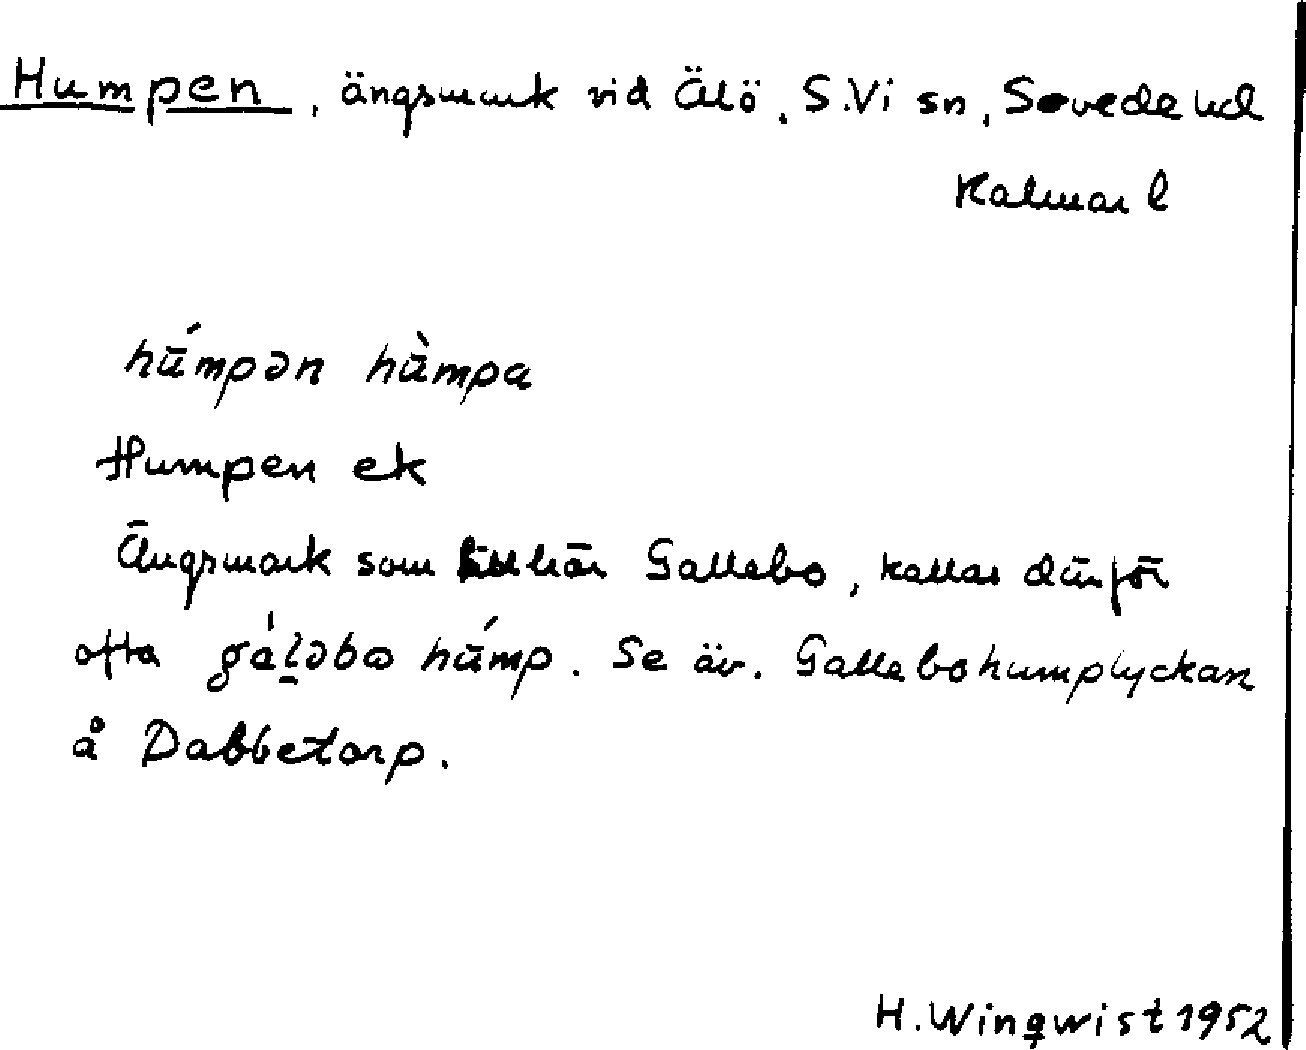 Humpen, ängsmark vid Älö, S.Vi sn, Sevede hd
Kalmar l
hū́mpən hùmpa
Humpen ek
Ängsmark som tillhör Gallebo, kallas därför
ofta gáḻəbo hū́mp. Se äv. Gallebohumplyckan
å Dabbetorp.
H. Wingwist 1952